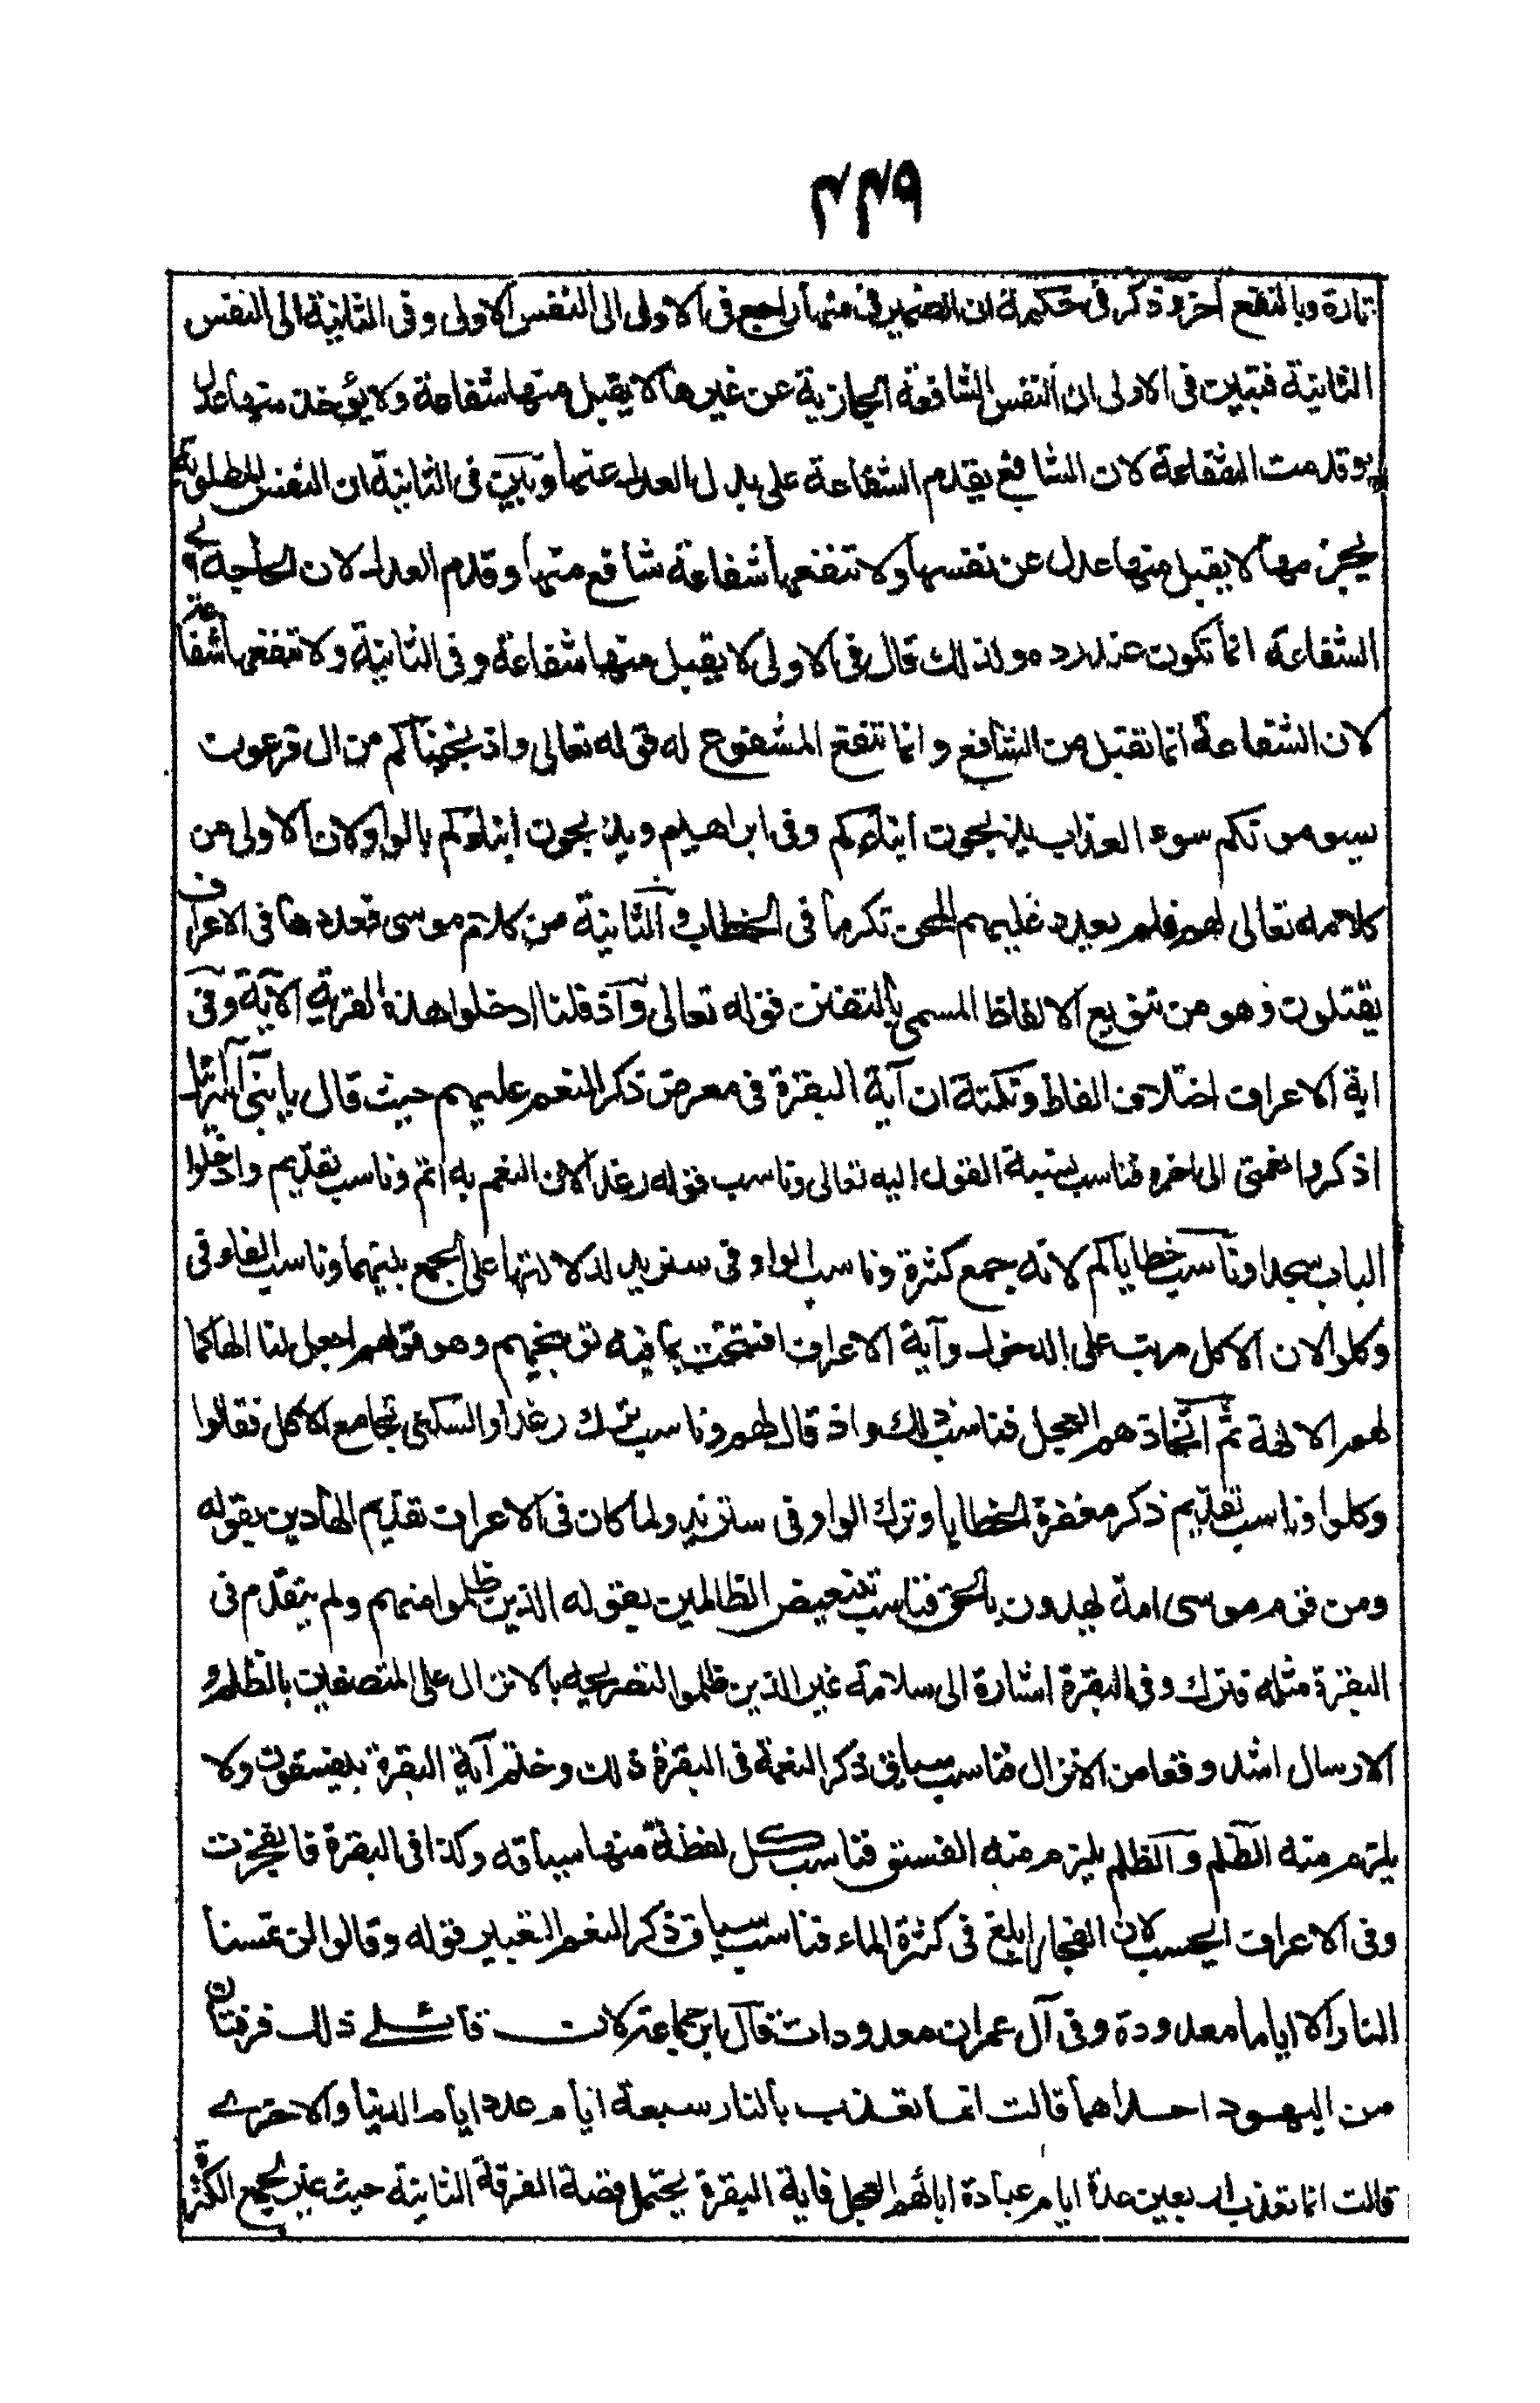 ٢٢٩
تارة وبالنفع اخرى وذكر فى حكمته ان الضمير فى منها راجع فى الاولى الى النفس الاولى وفى الثانية الى النفس
الثانية فتبين فى الاولى ان النفس الشافعة الجازية عن غيرها لا يقبل منها شفاعة ولا يؤخذ منها عدل
وقدمت الشفاعة لان الشافع يقدم الشفاعة على بذل العدل عنها وتبين فى الثانية ان النفس المطلوبة
بجرمها لا يقبل منها عدل عن نفسها ولا تنفعها شفاعة شافع منها وقدم العدل لان الحاجة الى
الشفاعة انما تكون عند رده ولذلك قال فى الاولى لا يقبل منها شفاعة وفى الثانية ولا تنفعها شفاعة
لان الشفاعة انما تقبل من الشافع وانما تنفع المشفوع له قوله تعالى واذ نجيناكم من ال فرعون
يسومونكم سوء العذاب يذبحون ابناءكم وفى ابراهيم ويذبحون ابناءكم بالواو لان الاولى من
كلامه تعالى لهم فلم يعدد عليهم المحن تكرما فى الخطاب والثانية من كلام موسى فعددها فى الاعراف
يقتلون وهو من تنويع الالفاظ المسمى بالتفنن قوله تعالى واذ قلنا ادخلوا هذه القرية الآية وفى
اية الاعراف اختلاف الفاظ ونكتة ان آية البقرة فى معرض ذكر النعم عليهم حيث قال يا بنى اسرائيل
اذكروا نعمتى الى اخره فناسب نسبة القول اليه تعالى وناسب قوله رغدا لان النعم به اتم وناسب تقديم وادخلوا
الباب سجدا وناسب خطاياكم لانه جمع كثرة وناسب الواو فى سنزيد لدلالتها على الجمع بينهما وناسب الفاء فى
وكلوا لان الاكل مرتب على الدخول وآية الاعراف افتتحت بما فيه توبيخهم وهو قولهم اجعل لنا الها كما
لهم الالهة ثم اتخاذهم العجل فناسب ذلك واذ قال لهم وناسب ترك رغدا والسكنى تجامع الاكل فقالوا
وكلوا وناسب تقديم ذكر مغفرة الخطايا وترك الواو فى سنزيد ولما كان فى الاعراف تقديم الهادين بقوله
ومن قوم موسى امة يهدون بالحق فناسب تبعيض الظالمين بقوله الذين ظلموا منهم ولم يتقدم فى
البقرة مثله فترك وفى البقرة اشارة الى سلامة غير الذين ظلموا لتصريحه بالانزال على المتصفين بالظلم و
الارسال اشد وقعا من الانزال فناسب سياق ذكر النعمة فى البقرة ذلك وختم آية البقرة بيفسقون ولا
يلزم منه الظلم والظلم يلزم منه الفسق فناسب كل لفظة منها سياقه وكذا فى البقرة فانفجرت
وفى الاعراف انبجست لان الانفجار ابلغ فى كثرة الماء فناسب سياق ذكر النعم التعبير قوله وقالوا لن تمسنا
النار الا اياما معدودة وفى آل عمران معدودات قال ابن جماعة لان قائلى ذلك فرقتان
من اليهود احداهما قالت انما نعذب بالنار سبعة ايام عدد ايام الدنيا والاخرى
قالت انما نعذب اربعين عدة ايام عبادة ابائهم العجل فاية البقرة يحتمل قصة الفرقة الثانية حيث عبر بجمع الكثرة